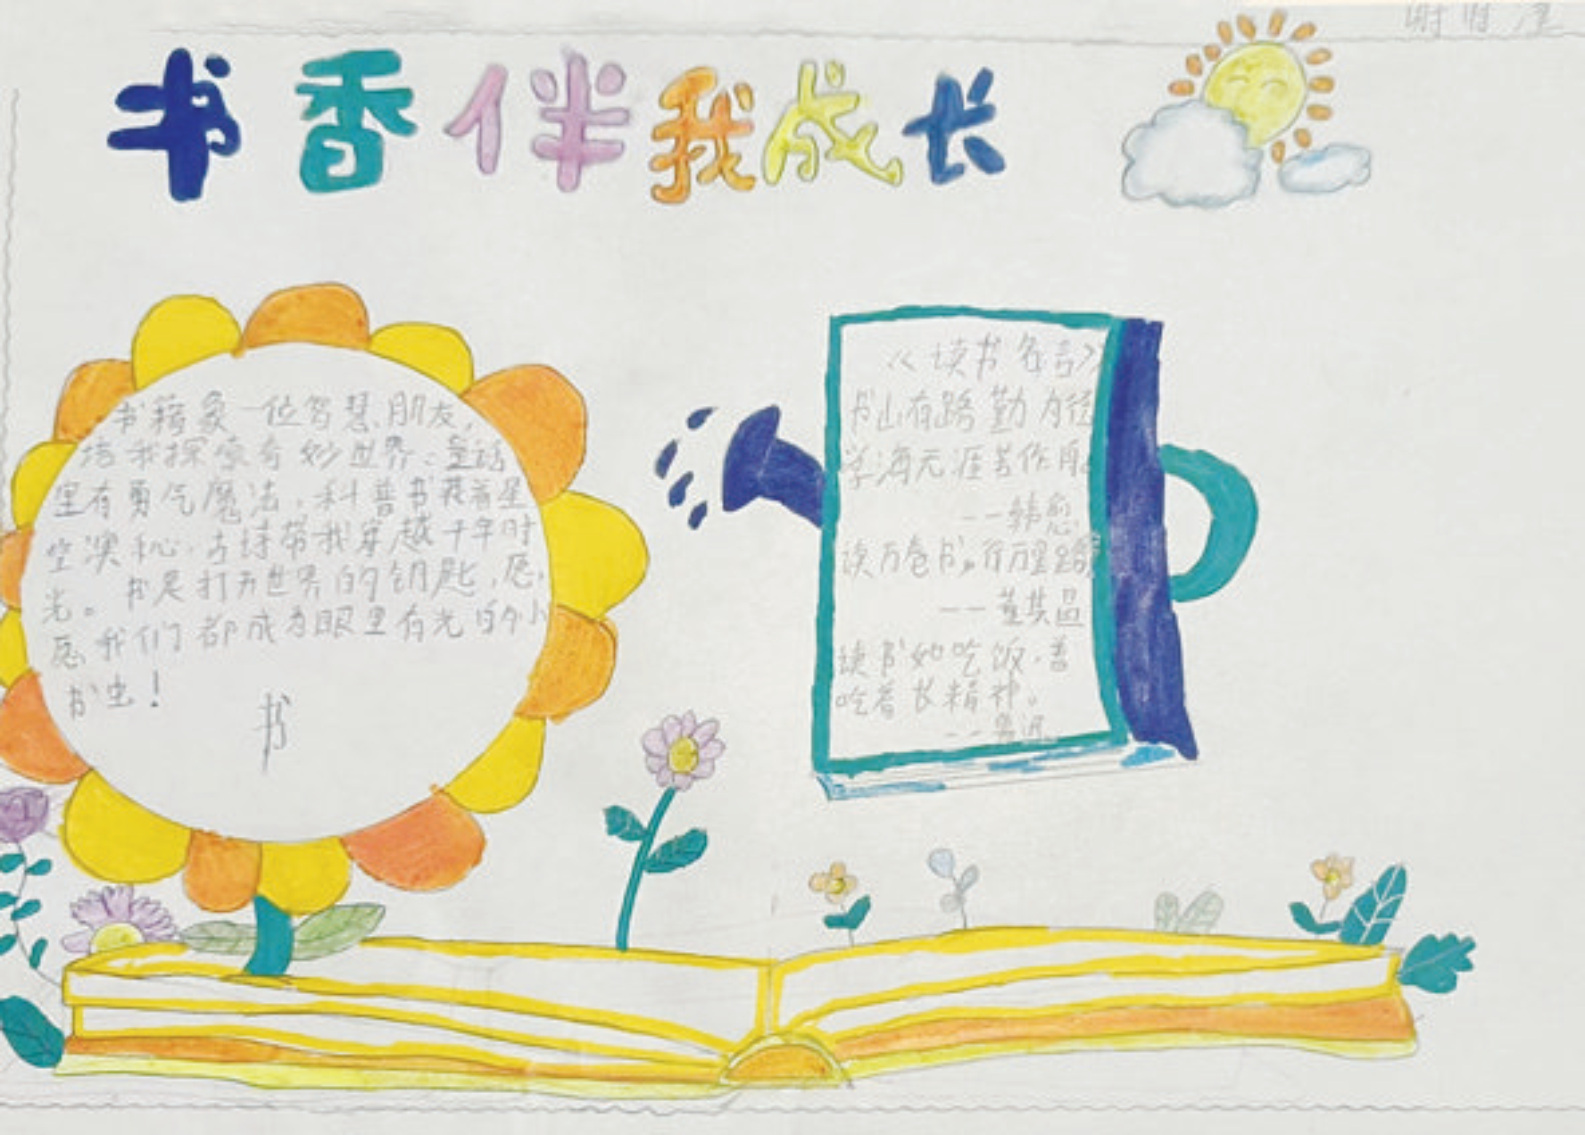 书香伴我成长
书籍象一位智慧朋友,
培我探索奇妙世界:童话
里有勇气魔法,科普书藏着星
空澳秘,古诗带我穿越千年时
光。书是打开世界的钥匙,愿,
愿我们都成为眼里有光的小
书虫!
书
《读书名言》
书山有路勤为径
学海无涯苦作舟。
--韩愈
读万卷书,行万里路
--董其昌
读书如吃饭,善
吃着长精神。